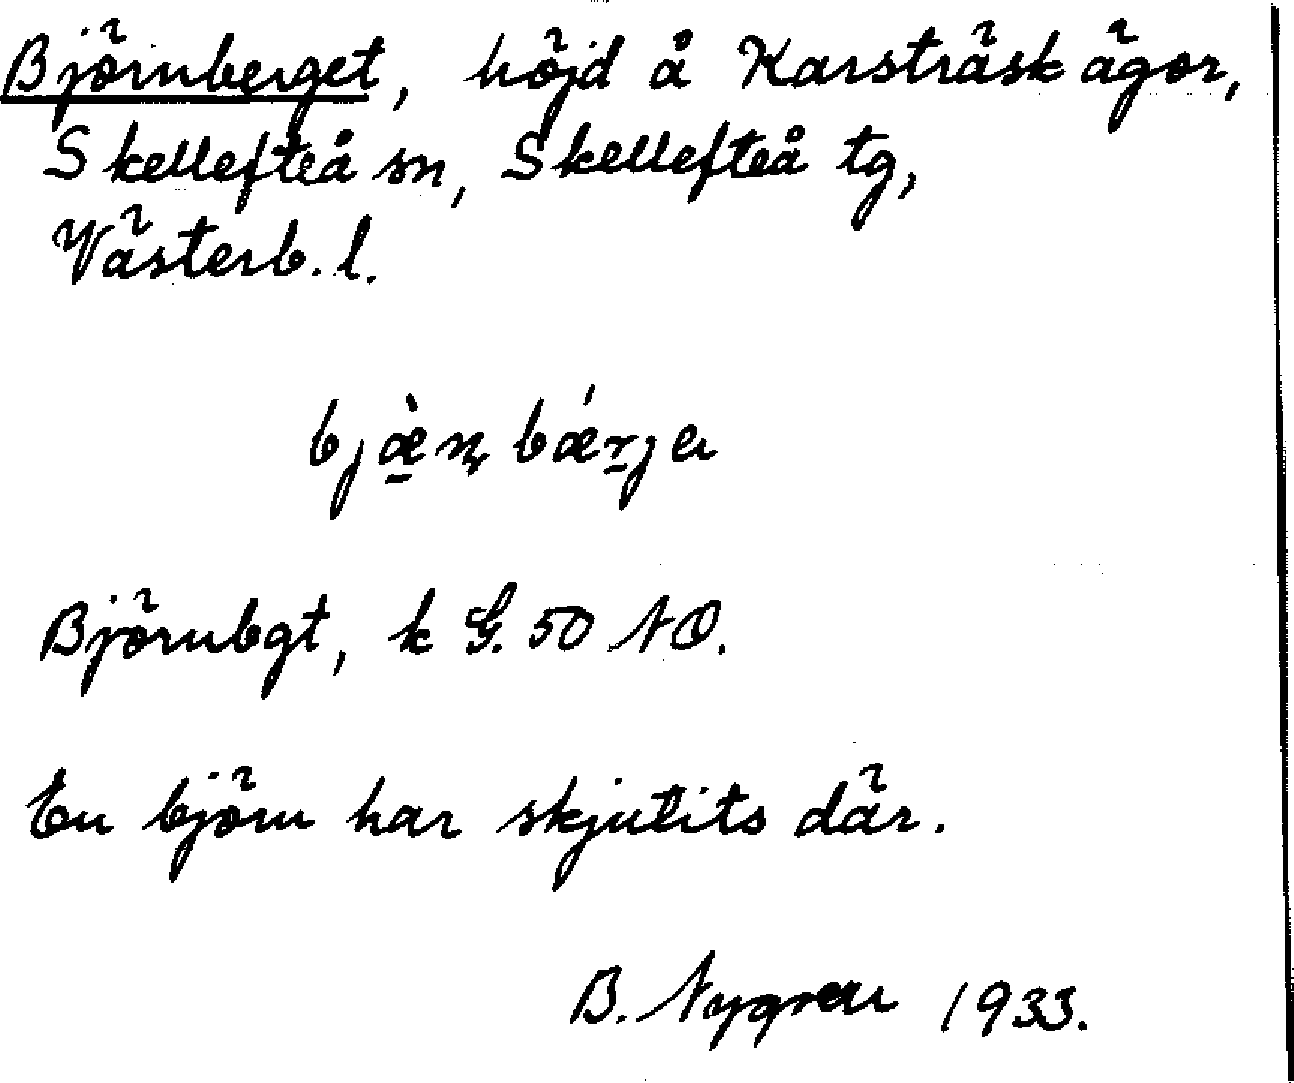 Björnberget, höjd å Karsträsk ägor,
Skellefteå sn, Skellefteå tg,
Västerb. l.
bjæ̠̀ṇbǽr̠jeɩ
Björnbgt, k G. 50 NO.
En björn har skjutits där.
B. Nygren 1933.